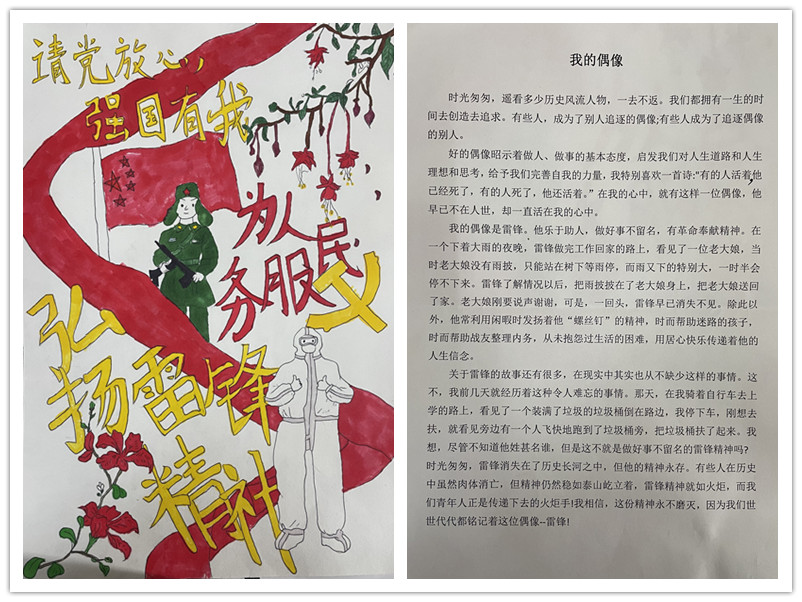 请党放心，
强国有我
为人民
服务
弘扬雷锋
精神
我的偶像
时光匆匆，遥看多少历史风流人物，一去不返。我们都拥有一生的时
间去创造去追求。有些人，成为了别人追逐的偶像;有些人成为了追逐偶像
的别人。
好的偶像昭示着做人、做事的基本态度，启发我们对人生道路和人生
理想和思考，给予我们完善自我的力量，我特别喜欢一首诗:“有的人活着他
已经死了，有的人死了，他还活着。”在我的心中，就有这样一位偶像，他
早已不在人世，却一直活在我的心中。
我的偶像是雷锋。他乐于助人，做好事不留名，有革命奉献精神。在
一个下着大雨的夜晚，雷锋做完工作回家的路上，看见了一位老大娘，当
时老大娘没有雨披，只能站在树下等雨停，而雨又下的特别大，一时半会
停不下来。雷锋了解情况以后，把雨披披在了老大娘身上，把老大娘送回
了家。老大娘刚要说声谢谢，可是，一回头，雷锋早已消失不见。除此以
外，他常利用闲暇时发扬着他“螺丝钉”的精神，时而帮助迷路的孩子，
时而帮助战友整理内务，从未抱怨过生活的困难，用居心快乐传递着他的
人生信念。
关于雷锋的故事还有很多，在现实中其实也从不缺少这样的事情。这
不，我前几天就经历着这种令人难忘的事情。那天，在我骑着自行车去上
学的路上，看见了一个装满了垃圾的垃圾桶倒在路边，我停下车，刚想去
扶，就看见旁边有一个人飞快地跑到了垃圾桶旁，把垃圾桶扶了起来。我
想，尽管不知道他姓甚名谁，但是这不就是做好事不留名的雷锋精神吗?
时光匆匆，雷锋消失在了历史长河之中，但他的精神永存。有些人在历史
中虽然肉体消亡，但精神仍然稳如泰山屹立着，雷锋精神就如火炬，而我
们青年人正是传递下去的火炬手!我相信，这份精神永不磨灭，因为我们世
世代代都铭记着这位偶像--雷锋!